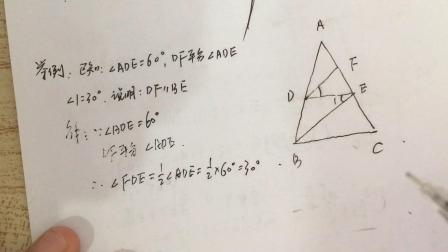 举例：已知：∠ADE=60°，DF平分∠ADE
∠1=30°，说明：DF∥BE
解：∵∠ADE=60°
DF平分∠ADE.
∴∠FDE=½∠ADE=½×60°=30°
A
F
D
E
1
B
C